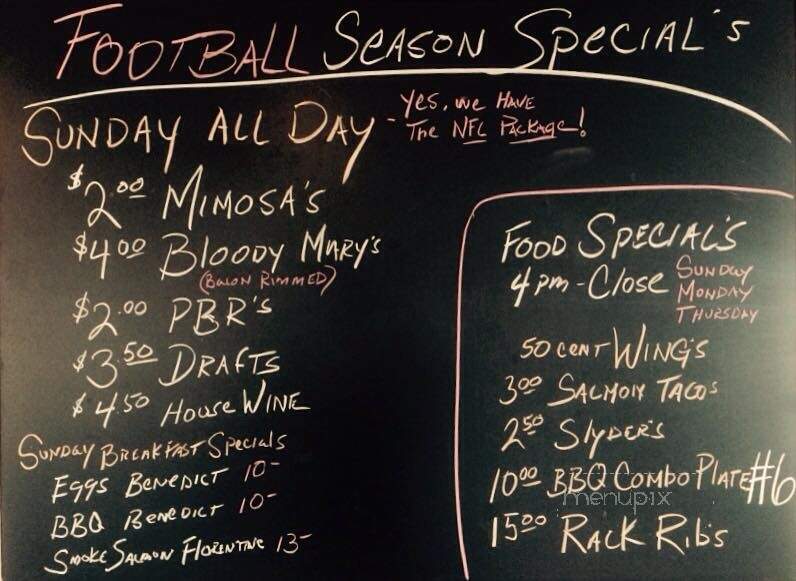 FOOTBALL SEASON SPECIAL'S
SUNDAY ALL DAY - Yes, we HAVE
The NFL PACKAGE!
$2.00 MIMOSA'S
$4.00 BLOODY MARY'S
(BACON RIMMED)
$2.00 PBR'S
$3.50 DRAFTS
$4.50 House WINE
SUNDAY BREAKFAST Specials
EGGS BENEDICT 10-
BBQ BENEDICT 10-
SMOKE SALMON FLORENTINE 13-
FOOD SPECIAL'S
4 pm - Close SUNDAY
MONDAY
THURSDAY
50 CENT WING'S
3.00 SALMON TACOS
2.50 SlyDER'S
10.00 BBQ Combo PLATE #6
15.00 RACK Rib's
menupix